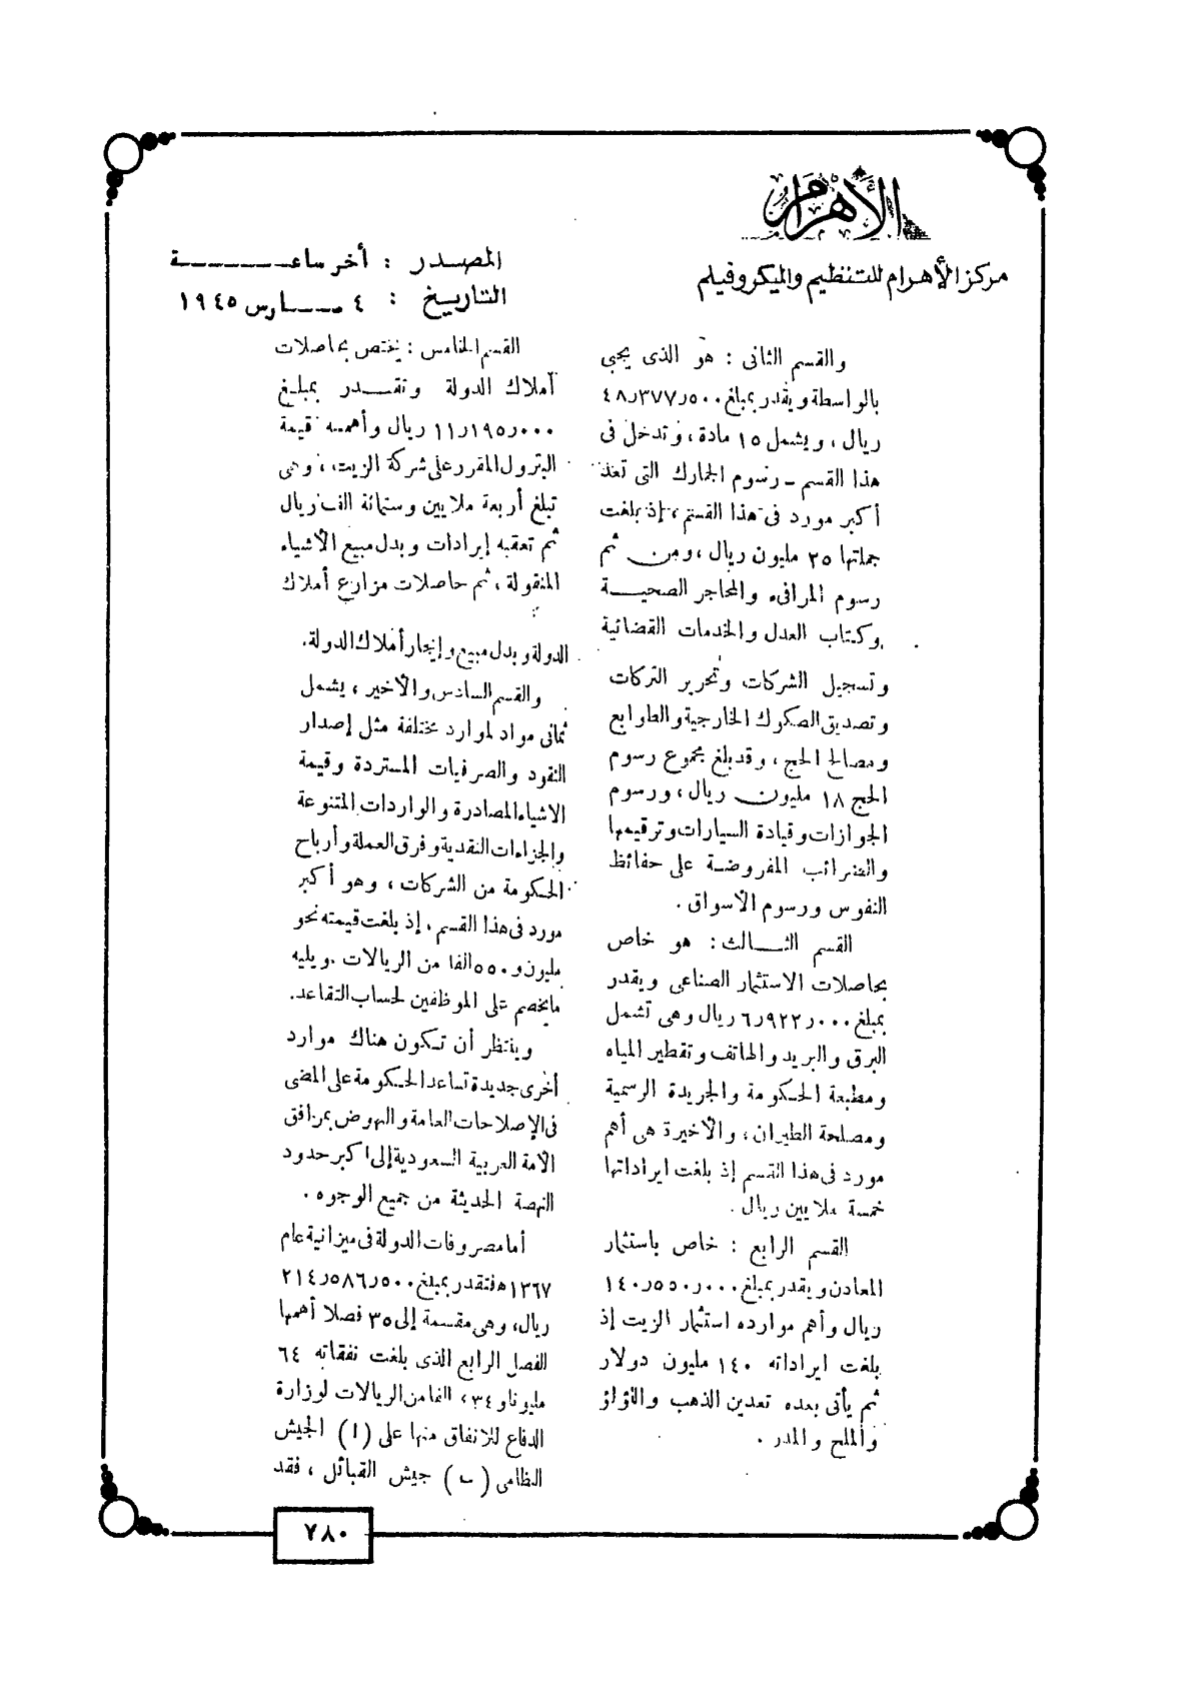 الأهرام
مركز الأهرام للتنظيم والميكروفيلم
المصدر : أخر ساعة
التاريخ : ٤ مارس ١٩٤٥
والقسم الثانى : هو الذى يجبى
بالواسطة ويقدر بمبلغ ٤٨٫٣٧٧٫٥٠٠
ريال ، ويشمل ١٥ مادة ، وتدخل فى
هذا القسم ـ رسوم الجمارك التى تعد
أكبر مورد فى هذا القسم ، إذ بلغت
جملتها ٢٥ مليون ريال ، ومن ثم
رسوم المرافىء والمحاجر الصحية
وكتاب العدل والخدمات القضائية
وتسجيل الشركات وتحرير التركات
وتصديق الصكوك الخارجية والطوابع
ومصالح الحج ، وقد بلغ مجموع رسوم
الحج ١٨ مليون ريال ، ورسوم
الجوازات وقيادة السيارات وترقيمها
والضرائب المفروضة على حفائظ
النفوس ورسوم الأسواق .
القسم الثالث : هو خاص
بحاصلات الاستثمار الصناعى ويقدر
بمبلغ ٦٫٩٢٢٫٠٠٠ ريال وهى تشمل
البرق والبريد والهاتف وتقطير المياه
ومطبعة الحكومة والجريدة الرسمية
ومصلحة الطيران ، والأخيرة هى أهم
مورد فى هذا القسم إذ بلغت ايراداتها
خمسة ملايين ريال .
القسم الرابع : خاص باستثمار
المعادن ويقدر بمبلغ ١٤٠٫٥٥٠٫٠٠٠
ريال وأهم موارده استثمار الزيت إذ
بلغت ايراداته ١٤٠ مليون دولار
ثم يأتى بعده تعدين الذهب واللؤلؤ
والملح والمدر .
القسم الخامس : يختص بحاصلات
أملاك الدولة وتقدر بمبلغ
١١٫١٩٥٫٠٠٠ ريال وأهمه قيمة
البترول المقرر على شركة الزيت ، وهى
تبلغ أربعة ملايين وستمائة الف ريال
ثم تعقبه إيرادات وبدل مبيع الأشياء
المنقولة ، ثم حاصلات مزارع أملاك
الدولة وبدل مبيع وإيجار أملاك الدولة .
والقسم السادس والأخير ، يشمل
ثمانى مواد لموارد مختلفة مثل إصدار
النقود والصرفيات المستردة وقيمة
الاشياء المصادرة والواردات المتنوعة
والجزاءات النقدية وفرق العملة وأرباح
الحكومة من الشركات ، وهو أكبر
مورد فى هذا القسم ، إذ بلغت قيمته نحو
مليون و ٥٥٠ الفا من الريالات . ويليه
مايخصم على الموظفين لحساب التقاعد .
وينتظر أن تكون هناك موارد
أخرى جديدة تساعد الحكومة على المضى
فى الإصلاحات العامة والنهوض بمرافق
الأمة العربية السعودية إلى أكبر حدود
النهضة الحديثة من جميع الوجوه .
أما مصروفات الدولة فى ميزانية عام
١٣٦٧ ه فتقدر بمبلغ ٢١٤٫٥٨٦٫٥٠٠
ريال ، وهى مقسمة إلى ٣٥ فصلا أهمها
الفصل الرابع الذى بلغت نفقاته ٦٤
مليونا و ٣٤ ، الفا من الريالات لوزارة
الدفاع للانفاق منها على (ا) الجيش
النظامى (ب) جيش القبائل ، فقد
٧٨٠